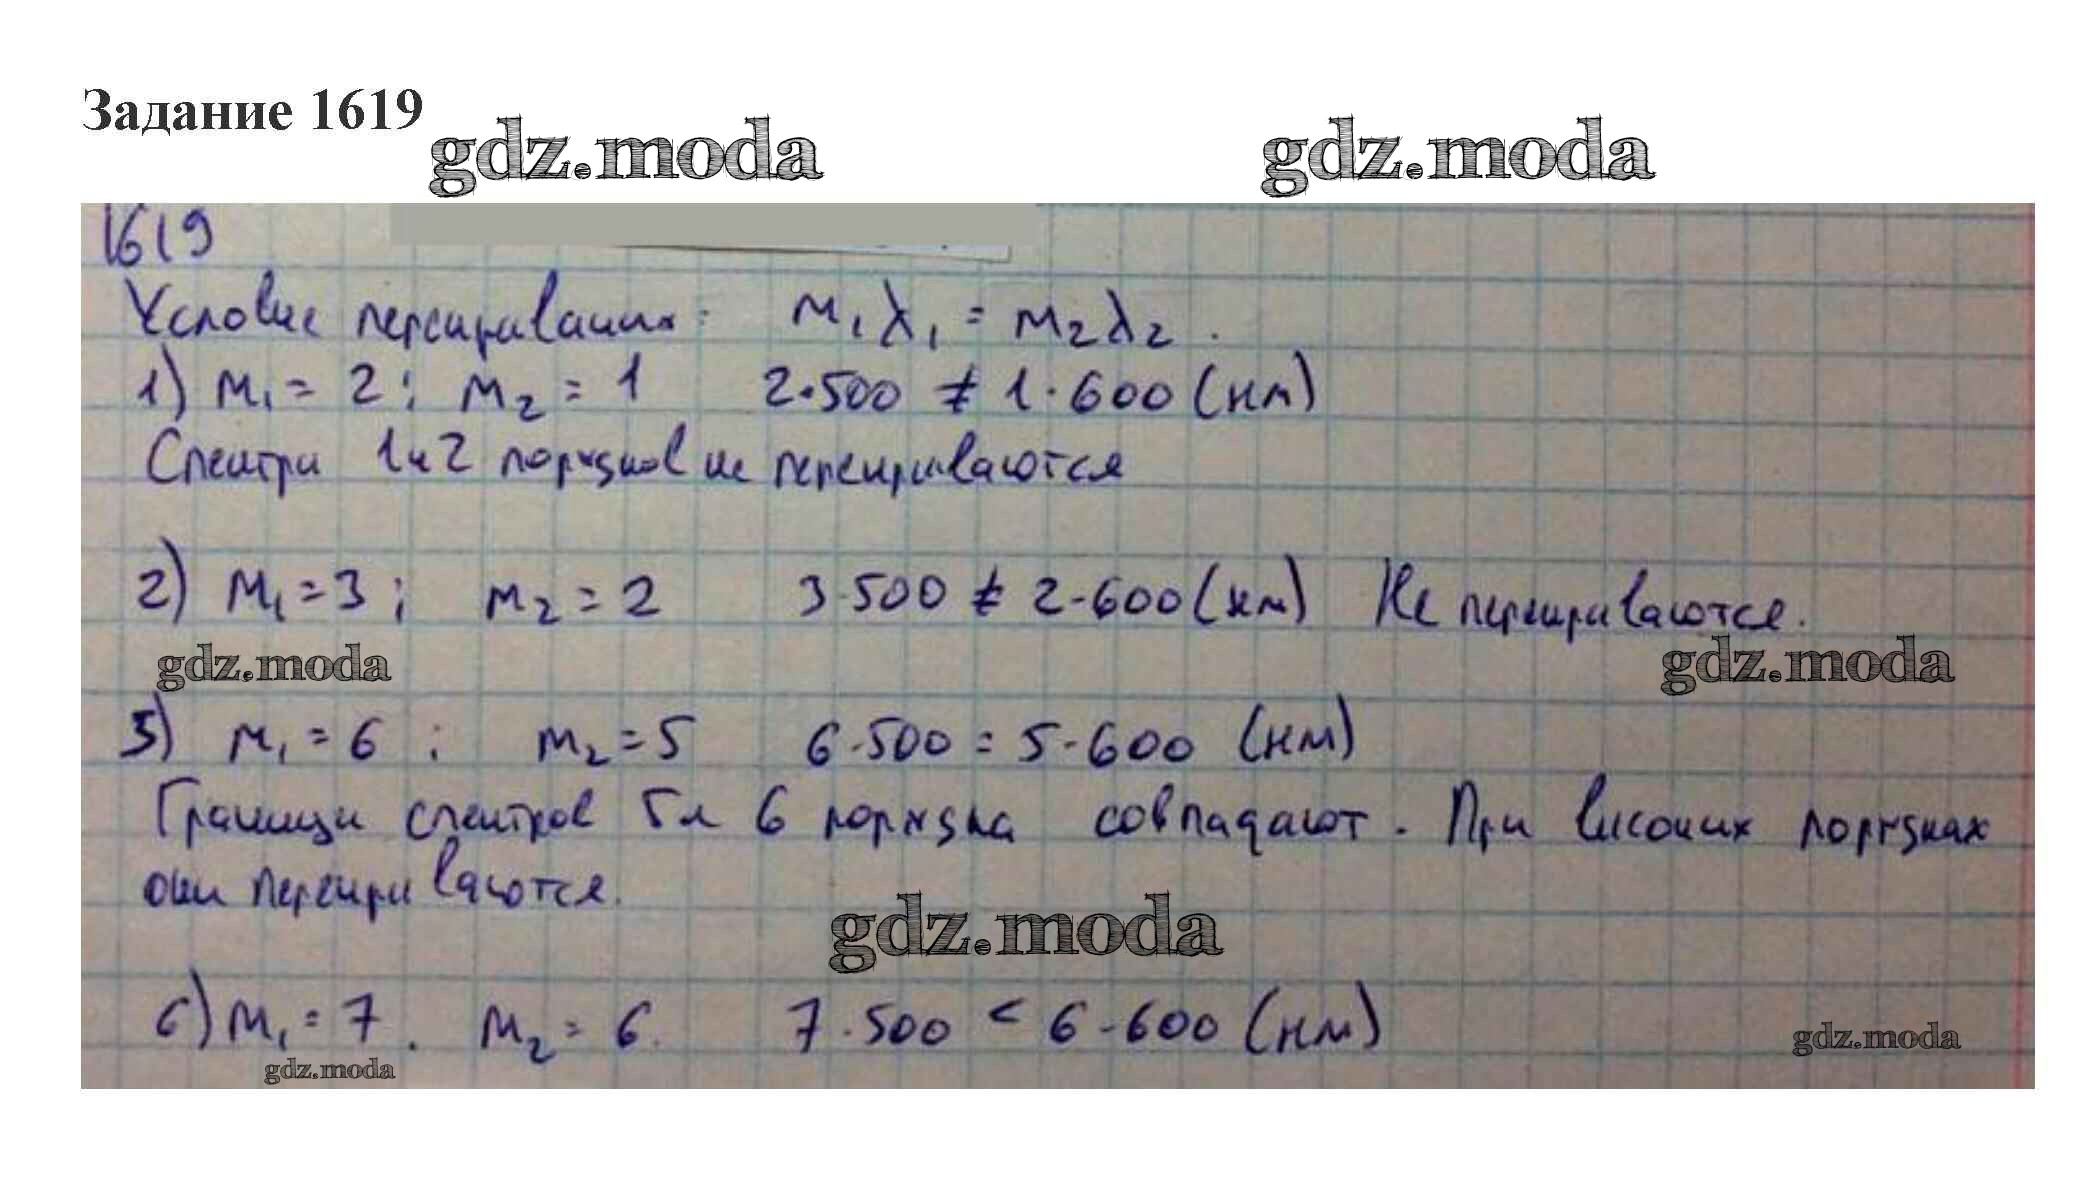 Задание 1619
gdz.moda gdz.moda
1619
Условие перекрывания: m₁λ₁ = m₂λ₂.
1) m₁ = 2; m₂ = 1 2·500 ≠ 1·600 (нм)
Спектры 1 и 2 порядков не перекрываются
2) m₁ = 3; m₂ = 2 3·500 ≠ 2·600 (нм) Не перекрываются.
gdz.moda gdz.moda
5) m₁ = 6; m₂ = 5 6·500 = 5·600 (нм)
Границы спектров 5 и 6 порядка совпадают. При високих порядках
они перекрываются.
gdz.moda
6) m₁ = 7. m₂ = 6. 7·500 < 6·600 (нм)
gdz.moda
gdz.moda